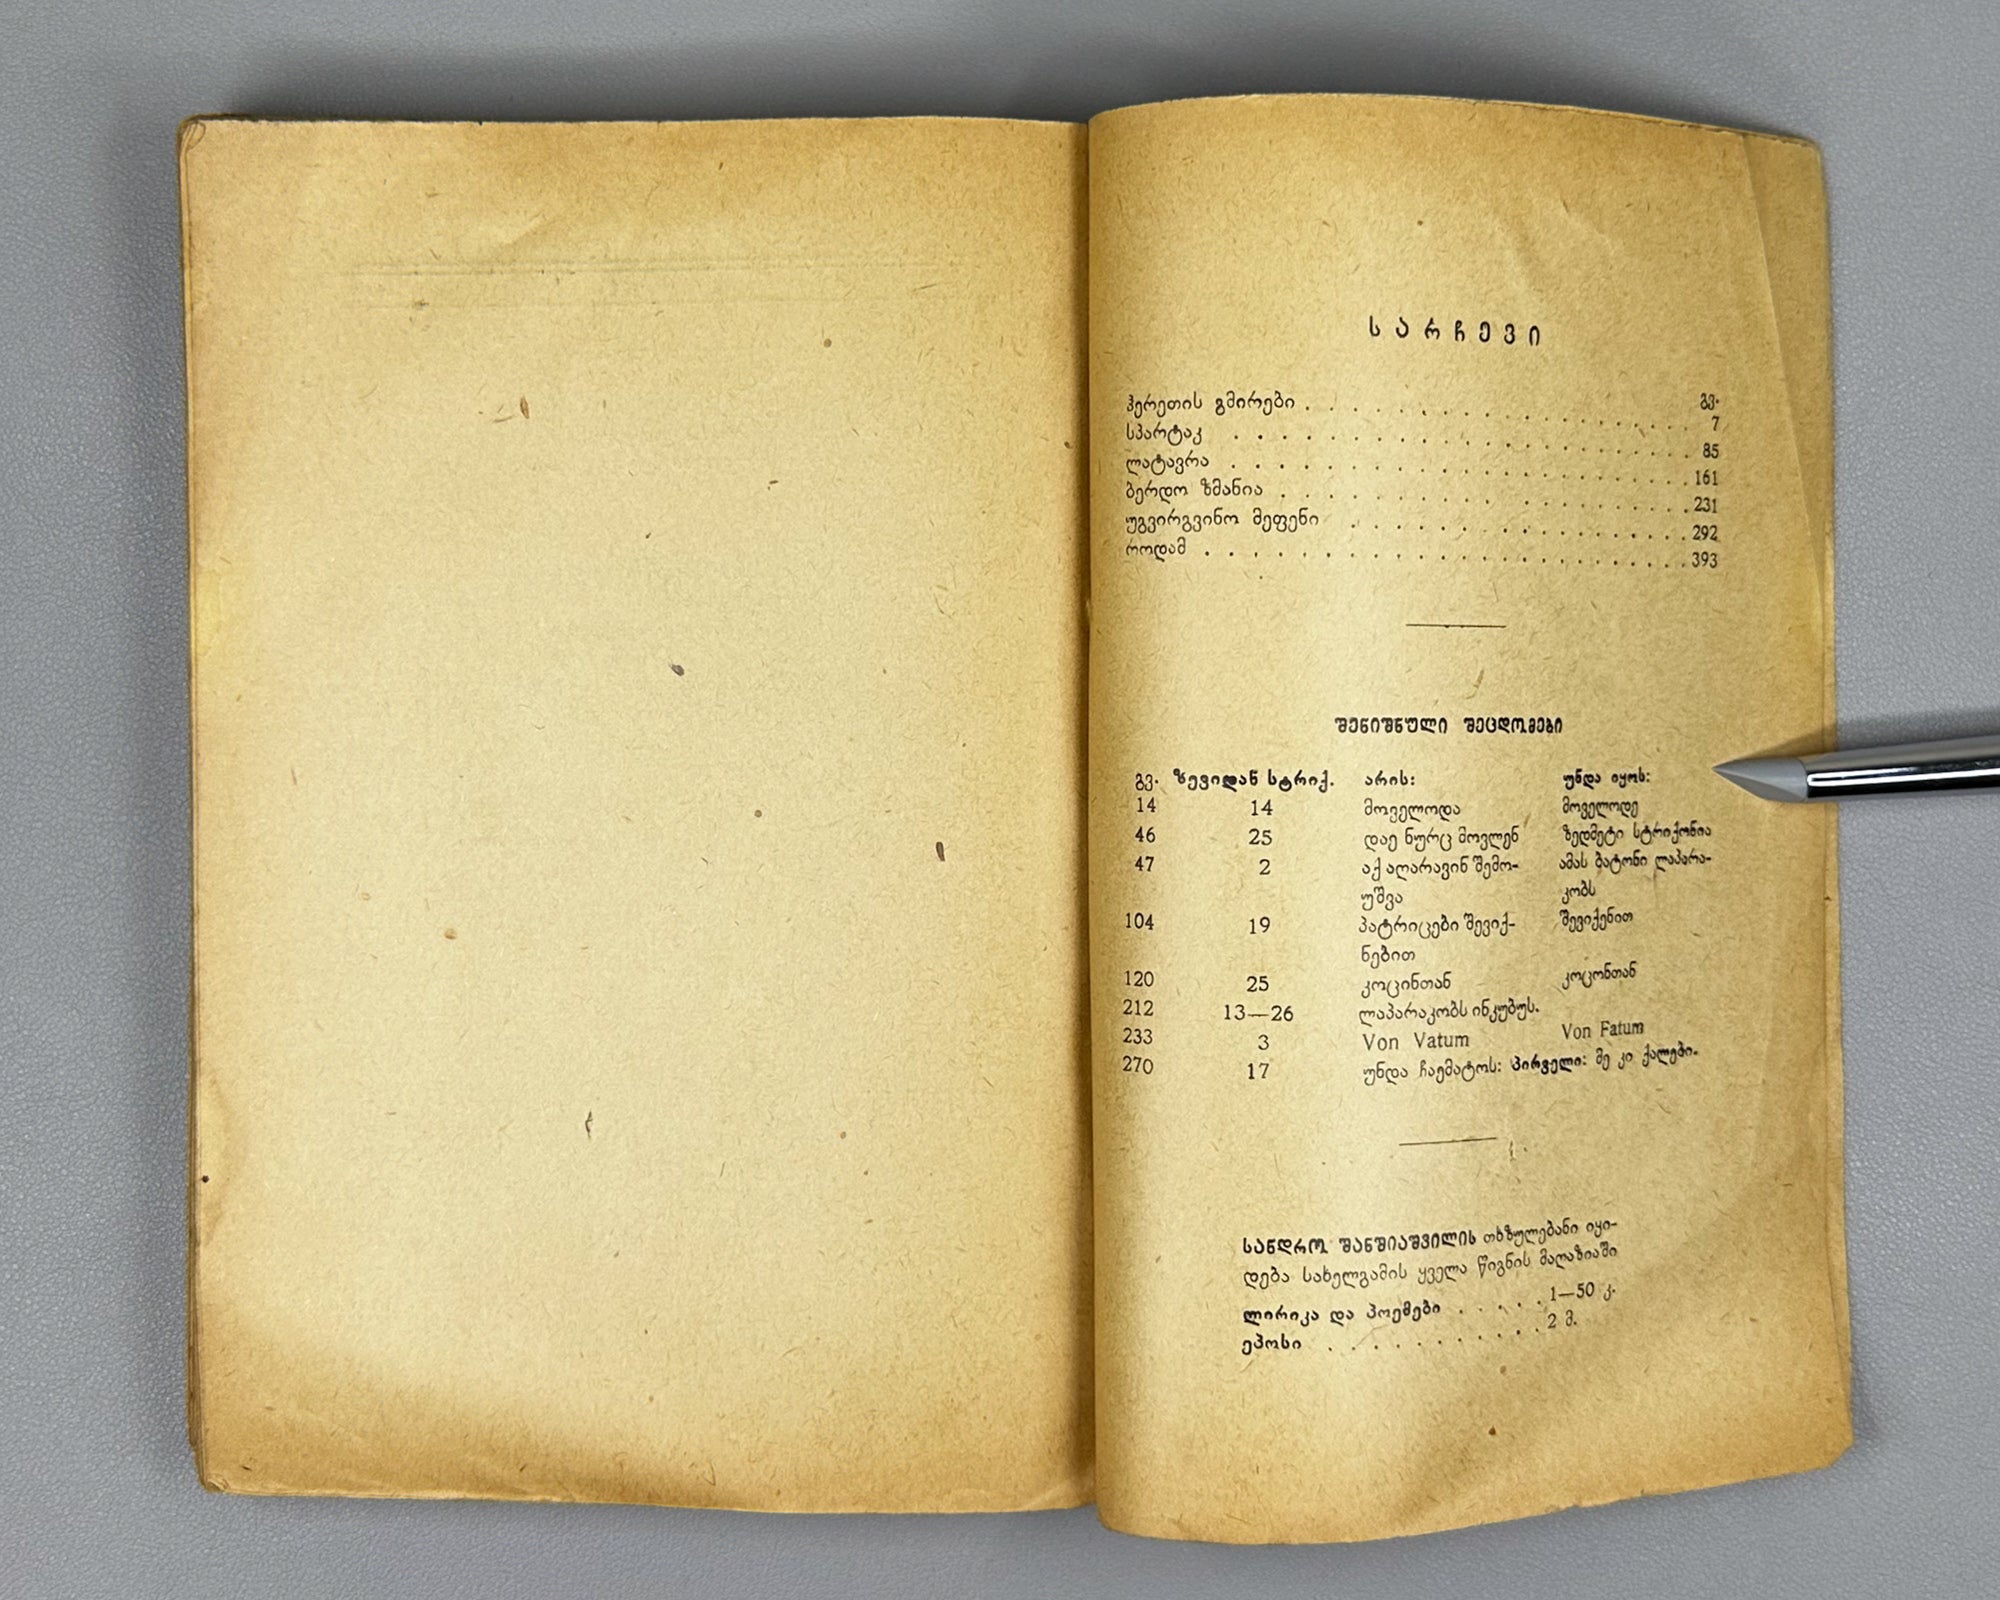 სარჩევი
გვ.
ჰერეთის გმირები . . . . . . . . . . . . . . . . . 7
სპარტაკ . . . . . . . . . . . . . . . . . . . . 85
ლატავრა . . . . . . . . . . . . . . . . . . . . 161
ბერდო ზმანია . . . . . . . . . . . . . . . . . . 231
უგვირგვინო მეფენი . . . . . . . . . . . . . . . 292
როდამ . . . . . . . . . . . . . . . . . . . . . 393
შენიშნული შეცდომები
გვ. ზევიდან სტრიქ. არის: უნდა იყოს:
14 14 მოველოდა მოველოდე
46 25 დაე ნურც მოვლენ ზედმეტი სტრიქონია
47 2 აქ აღარავინ შემო- ამას ბატონი ლაპარა-
უშვა კობს
104 19 პატრიცები შევიქ- შევიქენით
ნებით
120 25 კოცინთან კოცონთან
212 13—26 ლაპარაკობს ინკუბუს.
233 3 Von Vatum Von Fatum
270 17 უნდა ჩაემატოს: პირველი: მე კი ქალები.
სანდრო შანშიაშვილის თხზულებანი იყი-
დება სახელგამის ყველა წიგნის მაღაზიაში
ლირიკა და პოემები . . . . . 1—50 კ.
ეპოსი . . . . . . . . . . 2 მ.